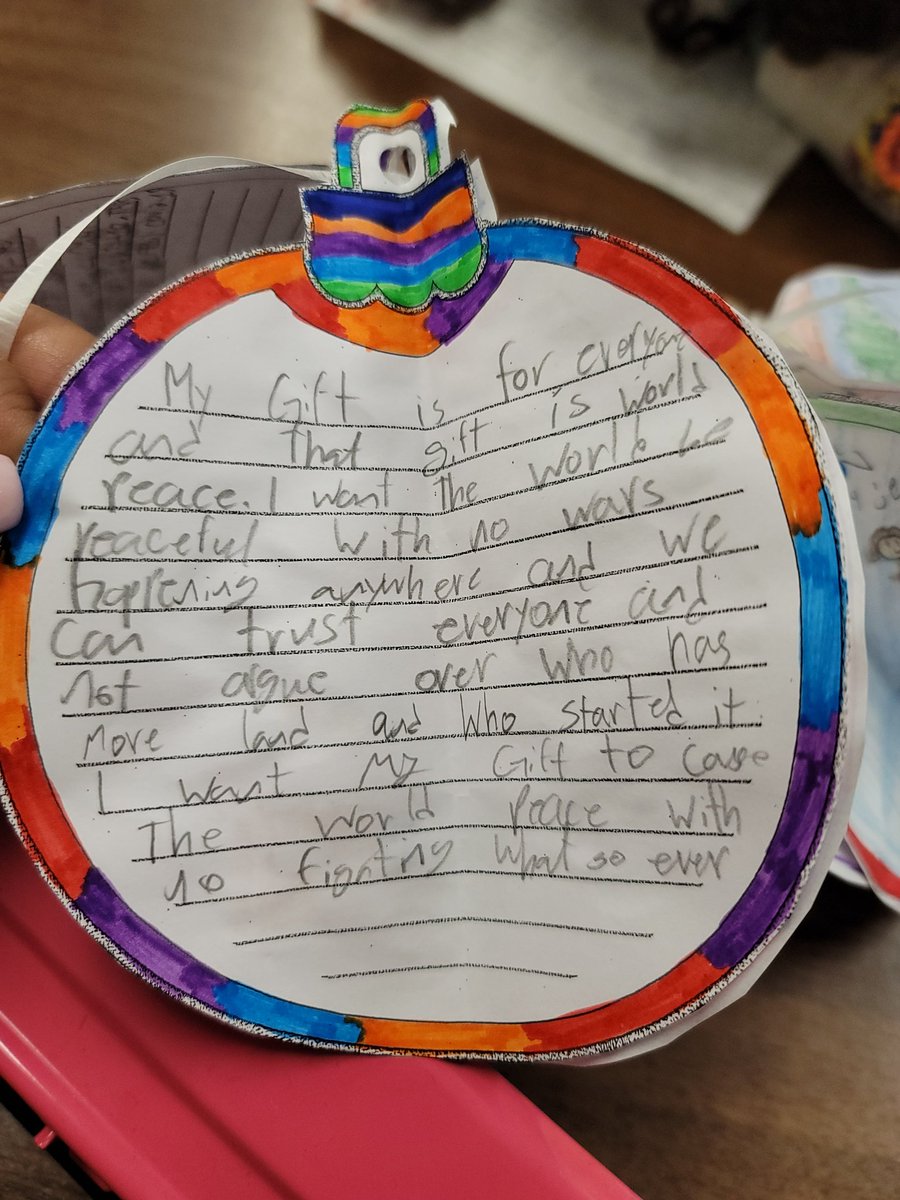 My Gift is for everyone
and that gift is world
peace. I want the world be
peaceful with no wars
happening anywhere and we
can trust everyone and
not argue over who has
more land and who started it
I want my Gift to cause
The world peace with
no fighting what so ever